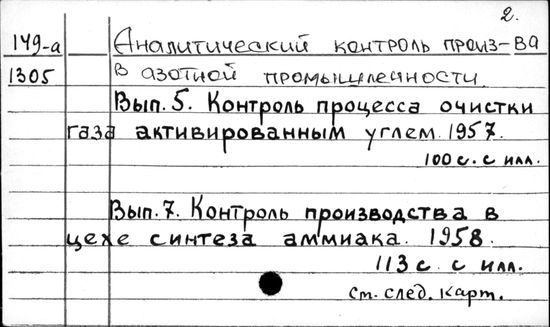 2.
149-а Аналитический контроль произ-ва
1305 в азотной промышленности
Вып. 5. Контроль процесса очистки
газа активированным углем. 1957.
100 с. с илл.
Вып. 7. Контроль производства в
цехе синтеза аммиака. 1958.
113 с. с илл.
см. след. карт.